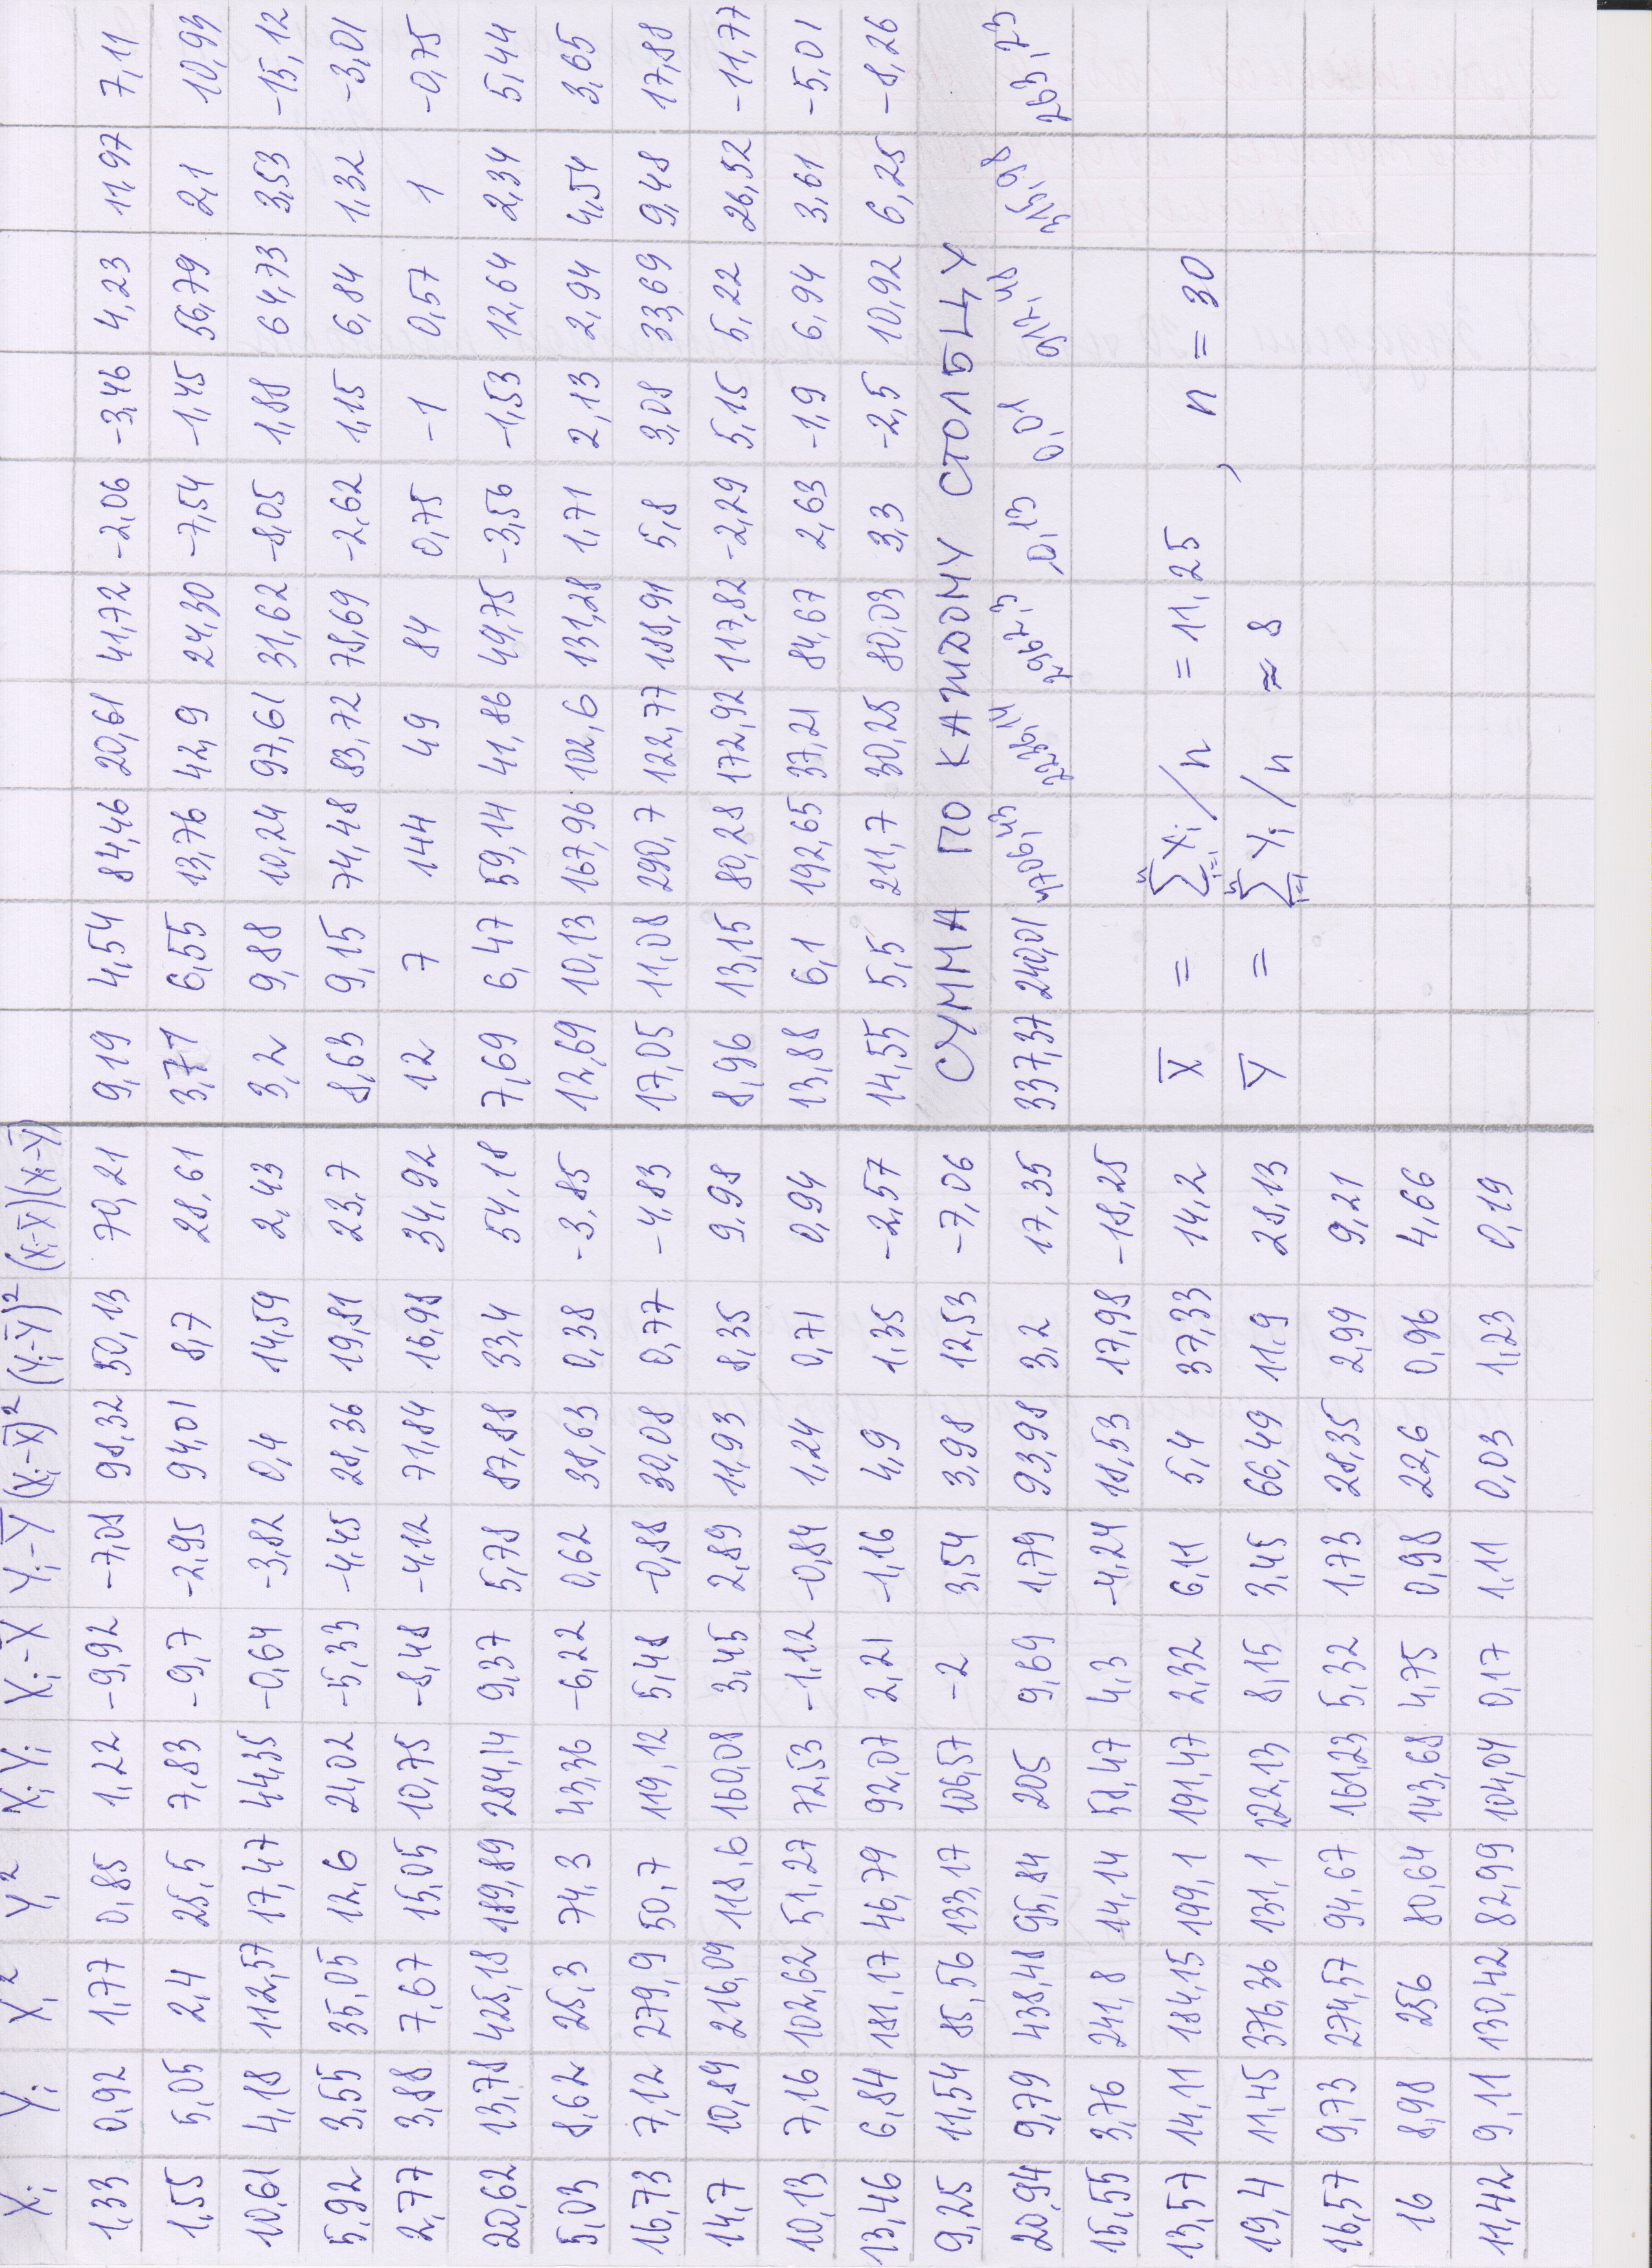 Xi Yi Xi² Yi² XiYi Xi-X̄ Yi-Ȳ (Xi-X̄)² (Yi-Ȳ)² (Xi-X̄)(Xi-Ȳ)
1,33 0,92 1,77 0,85 1,22 -9,92 -7,08 98,32 50,13 70,21
1,55 5,05 2,4 25,5 7,83 -9,7 -2,95 94,01 8,7 28,61
10,61 4,18 112,57 17,47 44,35 -0,64 -3,82 0,4 14,59 2,43
5,92 3,55 35,05 12,6 21,02 -5,33 -4,45 28,36 19,81 23,7
2,77 3,88 7,67 15,05 10,75 -8,48 -4,12 71,84 16,98 34,92
20,62 13,78 425,18 189,89 284,14 9,37 5,78 87,88 33,4 54,18
5,03 8,62 25,3 74,3 43,36 -6,22 0,62 38,63 0,38 -3,85
16,73 7,12 279,9 50,7 119,12 5,48 -0,88 30,08 0,77 -4,83
14,7 10,89 216,09 118,6 160,08 3,45 2,89 11,93 8,35 9,98
10,13 7,16 102,62 51,27 72,53 -1,12 -0,84 1,24 0,71 0,94
13,46 6,84 181,17 46,79 92,07 2,21 -1,16 4,9 1,35 -2,57
9,25 11,54 85,56 133,17 106,57 -2 3,54 3,98 12,53 -7,06
20,94 9,79 438,48 95,84 205 9,69 1,79 93,98 3,2 17,35
15,55 3,76 241,8 14,14 58,47 4,3 -4,24 18,53 17,98 -18,25
13,57 14,11 184,15 199,1 191,47 2,32 6,11 5,4 37,33 14,2
19,4 11,45 376,36 131,1 222,13 8,15 3,45 66,49 11,9 28,13
16,57 9,73 274,57 94,67 161,23 5,32 1,73 28,35 2,99 9,21
16 8,98 256 80,64 143,68 4,75 0,98 22,6 0,96 4,66
11,42 9,11 130,42 82,99 104,04 0,17 1,11 0,03 1,23 0,19
9,19 4,54 84,46 20,61 41,72 -2,06 -3,46 4,23 11,97 7,11
3,71 6,55 13,76 42,9 24,30 -7,54 -1,45 56,79 2,1 10,93
3,2 9,88 10,24 97,61 31,62 -8,05 1,88 64,73 3,53 -15,12
8,63 9,15 74,48 83,72 78,69 -2,62 1,15 6,84 1,32 -3,01
12 7 144 49 84 0,75 -1 0,57 1 -0,75
7,69 6,47 59,14 41,86 49,75 -3,56 -1,53 12,64 2,34 5,44
12,69 10,13 167,96 102,6 131,28 1,71 2,13 2,94 4,54 3,65
17,05 11,08 290,7 122,77 188,91 5,8 3,08 33,69 9,48 17,88
8,96 13,15 80,28 172,92 117,82 -2,29 5,15 5,22 26,52 -11,77
13,88 6,1 192,65 37,21 84,67 2,63 -1,9 6,94 3,61 -5,01
14,55 5,5 211,7 30,25 80,03 3,3 -2,5 10,92 6,25 -8,26
СУММА ПО КАЖДОМУ СТОЛБЦУ
337,37 240,01 4706,43 2236,14 2962,3 -0,13 0,01 912,48 315,98 263,23
X̄ = ∑ⁿᵢ₌₁ Xi / n = 11,25 , n = 30
Ȳ = ∑ⁿᵢ₌₁ Yi / n ≈ 8